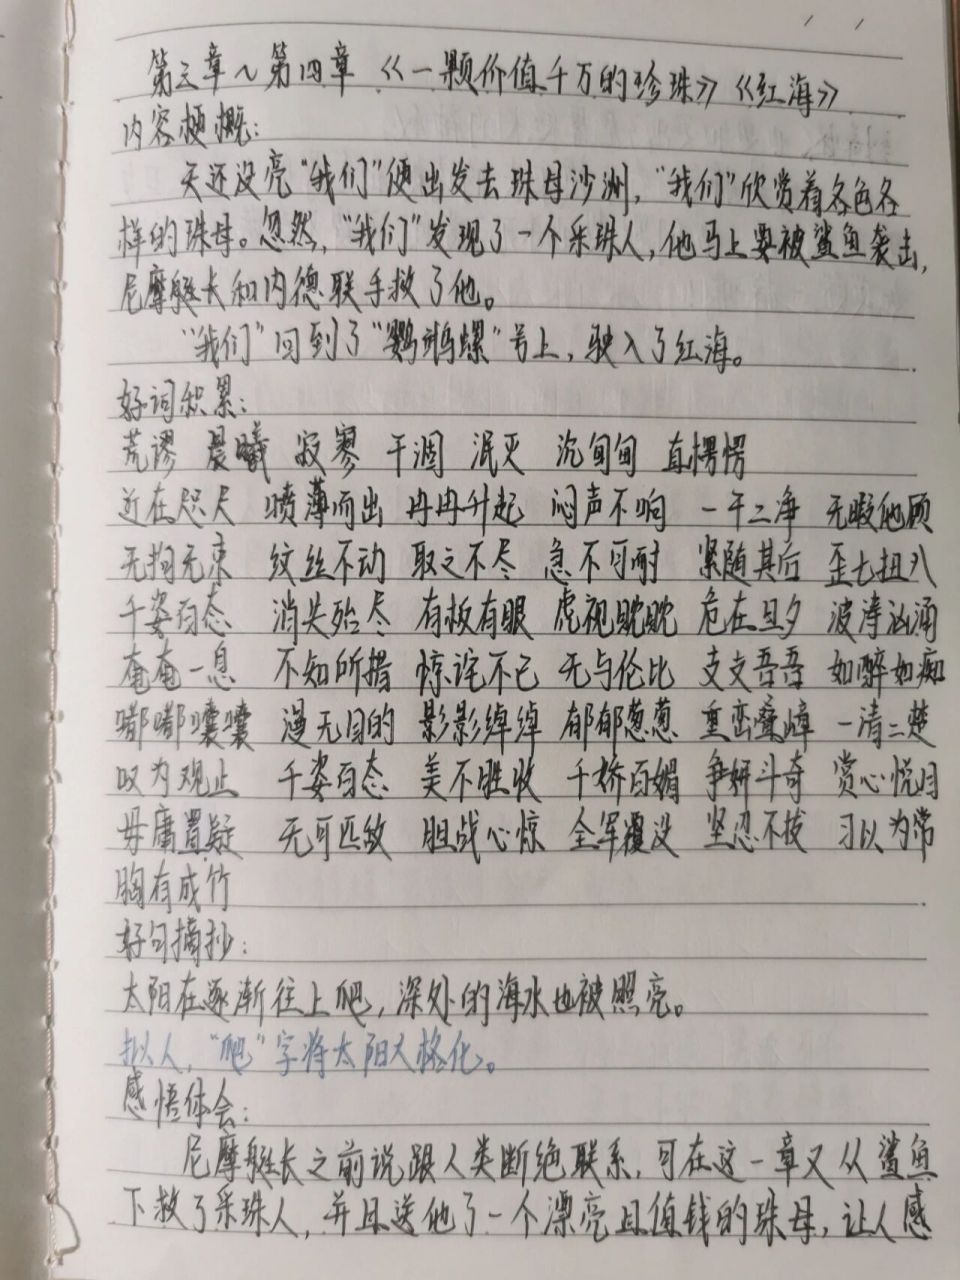 第三章~第四章《一颗价值千万的珍珠》《红海》
内容梗概:
天还没亮"我们"便出发去珠母沙洲,"我们"欣赏着各色各
样的珠母。忽然,"我们"发现了一个采珠人,他马上要被鲨鱼袭击,
尼摩艇长和内德联手救了他。
"我们"回到了"鹦鹉螺"号上,驶入了红海。
好词积累:
荒谬 晨曦 寂寥 干涸 泯灭 沉甸甸 直愣愣
近在咫尺 喷薄而出 冉冉升起 闷声不响 一干二净 无暇他顾
无拘无束 纹丝不动 取之不尽 急不可耐 紧随其后 歪七扭八
千姿百态 消失殆尽 有板有眼 虎视眈眈 危在旦夕 波涛汹涌
奄奄一息 不知所措 惊诧不已 无与伦比 支支吾吾 如醉如痴
嘟嘟囔囔 漫无目的 影影绰绰 郁郁葱葱 重峦叠嶂 一清二楚
叹为观止 千姿百态 美不胜收 千娇百媚 争妍斗奇 赏心悦目
毋庸置疑 无可匹敌 胆战心惊 全军覆没 坚忍不拔 习以为常
胸有成竹
好句摘抄:
太阳在逐渐往上爬,深处的海水也被照亮。
拟人,"爬"字将太阳人格化。
感悟体会:
尼摩艇长之前说跟人类断绝联系,可在这一章又从鲨鱼
下救了采珠人,并且送他了一个漂亮且值钱的珠母,让人感